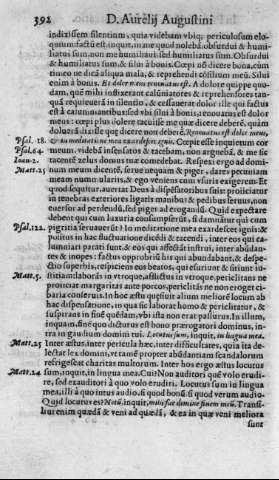 392 D. Aurelij Augustini
indixissem silentium, quia videbam vbiq; periculosum elo-
quium factũ est inquit, in me quod nolebã. obsurdui & humi-
liatus sum, non me humiliaui sed humiliatus sum. Obsurdui
& humiliatus sum & silui à bonis. Cœpi nõ dicere bona, cum
timeo ne dicã aliqua mala, & reprehendi cõsilium meũ. Silui
enim à bonis. Et dolor meus renouatus est. A dolore quippe quo-
dam, quẽ mihi inflixerant calũniatores & reprehensores tan-
quã requieuerã in silentio, & cessauerat dolor ille qui factus
est à calumniantibus sed vbi silui à bonis, renouatus est dolor
meus: cœpi plus dolere tacuisse me quæ dicere deberẽ, quàm
dolueră dixisse quę dicere non deberẽ, Renouatus est dolor meus,
Psal. 38. & in meditatione mea exardescet ignis. Cœpit esse inquietum cor
Psal. 64. meum. videbã insensatos &
Ioan. 2. tacentẽ zelus domus tuæ comedebat. Respexi ergo ad domi-
Matt. 25 num meum dicentẽ, serue nequam & piger, dares pecuniam
meam numulariis, & ego veniens cum vsuris exigerem. Et
quod sequitur, auertat Deus à dispẽsatoribus suis: proiiciatur
in tenebras exteriores ligatis manibus & pedibus seruus, non
euersor ad perdendũ, sed piger ad erogandũ. Quid expectare
debent qui cum luxuria consumpserũt, si damnãtur qui cum
Psal. 122. pigritia seruauerunt? In meditatione mea exardescet ignis: &
positus in hac fluctuatione dicẽdi & tacendi, inter eos qui ca-
lumniari parati sunt, & eos qui affectãt instrui, inter abũdan-
tes & inopes: factus opprobriũ his qui abundabant, & despe-
ctio superbis, respiciens eos beatos, qui esuriunt & sitiunt iu-
Matt. 5. stitiam laborãs in vtroque, afflictus in vtroque, periclitans ne
proiiciat margaritas ante porcos, periclitãs ne non eroget ci-
baria conseruis. In hoc æstu quęsiuit alium meliorẽ locum ab
hac dispensatione, in qua sic laborat homo & periclitatur, &
suspirans in finẽ quẽdam, vbi ista non erat passurus. In illum,
inquam, finẽ quo dicturus est bono prærogatori dominus, in-
tra in gaudium domini tui. Locutus sum, inquit, in lingua mea.
Matt. 25 Inter æstus, inter pericula hæc, inter difficultates, quia ita de-
lectat lex domini, vt tamẽ propter abũdantiam scandalorum
refrigescat charitas multorum. Inter hos ergo æstus locutus
Matt. 24 sum, inquit, in lingua mea. Cui? Non auditori quẽ volo erudi-
re, sed exauditori à quo volo erudiri. Locutus sum in lingua
mea, illi à quo intus audio, si quod bonũ, si quod verum audio.
Quid locutus es? Notũ, inquit, mihi fac domine finem meũ. Transi-
bunt enim quædã & veni ad quædã, & ea in quæ veni meliora
sunt